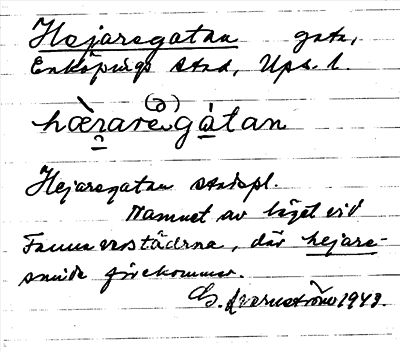 Hejaregatan gata,
Enköpings stad, Ups. l.
(ə)
hæ̀raregátan
Hejaregatan stadspl.
Namnet av läget vid
Fanna verstäderna, där hejare-
smide förekommer.
G. Kvarnström 1943.